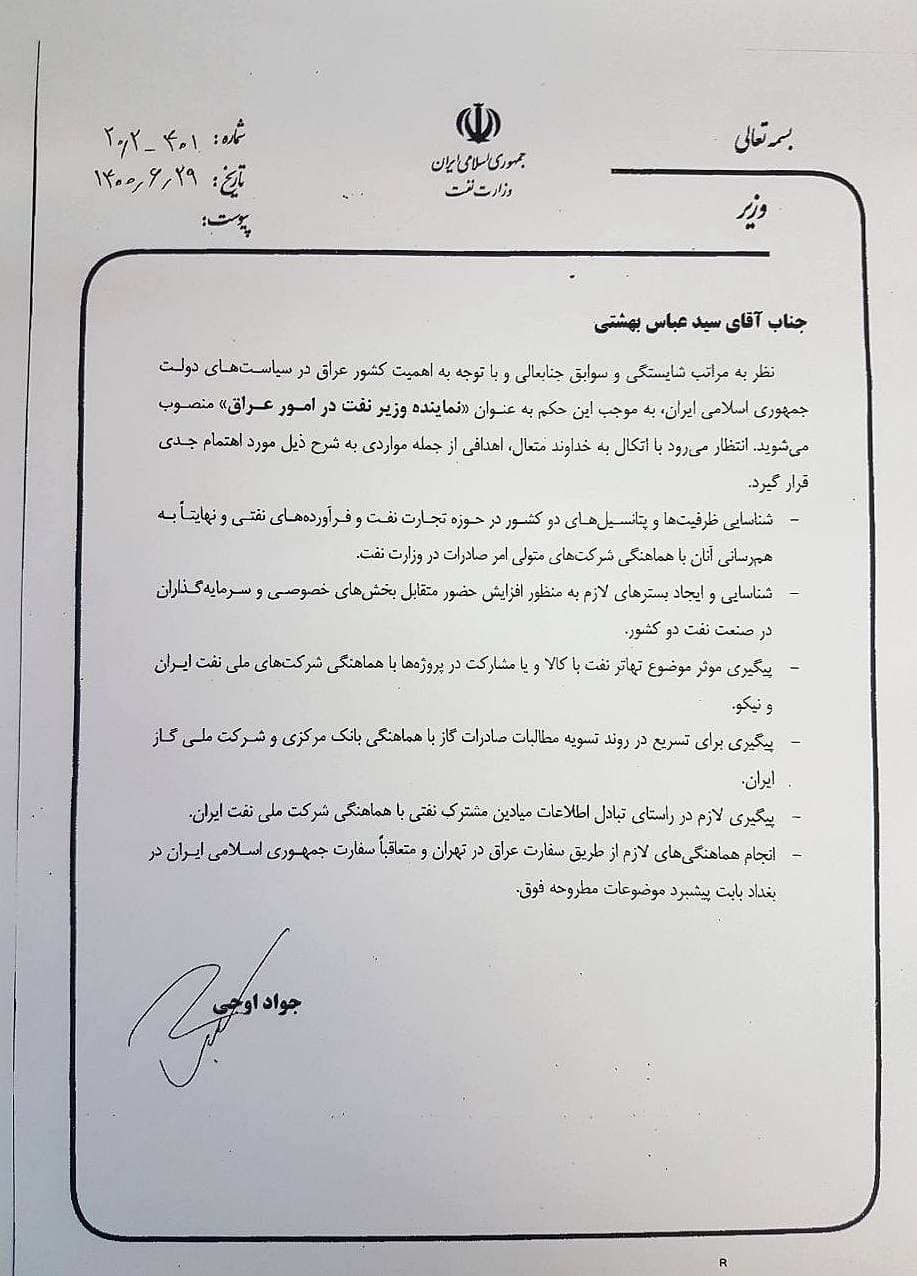 بسمه تعالی
جمهوری اسلامی ایران
وزارت نفت
وزیر
شماره: ۴۰۱ _ ۲۰/۲
تاریخ: ۱۴۰۰/۶/۲۹
پیوست:
جناب آقای سید عباس بهشتی
نظر به مراتب شایستگی و سوابق جنابعالی و با توجه به اهمیت کشور عراق در سیاست‌های دولت
جمهوری اسلامی ایران، به موجب این حکم به عنوان «نماینده وزیر نفت در امور عراق» منصوب
می‌شوید. انتظار می‌رود با اتکال به خداوند متعال، اهدافی از جمله مواردی به شرح ذیل مورد اهتمام جدی
قرار گیرد.
- شناسایی ظرفیت‌ها و پتانسیل‌های دو کشور در حوزه تجارت نفت و فرآورده‌های نفتی و نهایتاً به
هم‌رسانی آنان با هماهنگی شرکت‌های متولی امر صادرات در وزارت نفت.
- شناسایی و ایجاد بسترهای لازم به منظور افزایش حضور متقابل بخش‌های خصوصی و سرمایه‌گذاران
در صنعت نفت دو کشور.
- پیگیری موثر موضوع تهاتر نفت با کالا و یا مشارکت در پروژه‌ها با هماهنگی شرکت‌های ملی نفت ایران
و نیکو.
- پیگیری برای تسریع در روند تسویه مطالبات صادرات گاز با هماهنگی بانک مرکزی و شرکت ملی گاز
ایران.
- پیگیری لازم در راستای تبادل اطلاعات میادین مشترک نفتی با هماهنگی شرکت ملی نفت ایران.
- انجام هماهنگی‌های لازم از طریق سفارت عراق در تهران و متعاقباً سفارت جمهوری اسلامی ایران در
بغداد بابت پیشبرد موضوعات مطروحه فوق.
جواد اوجی
R